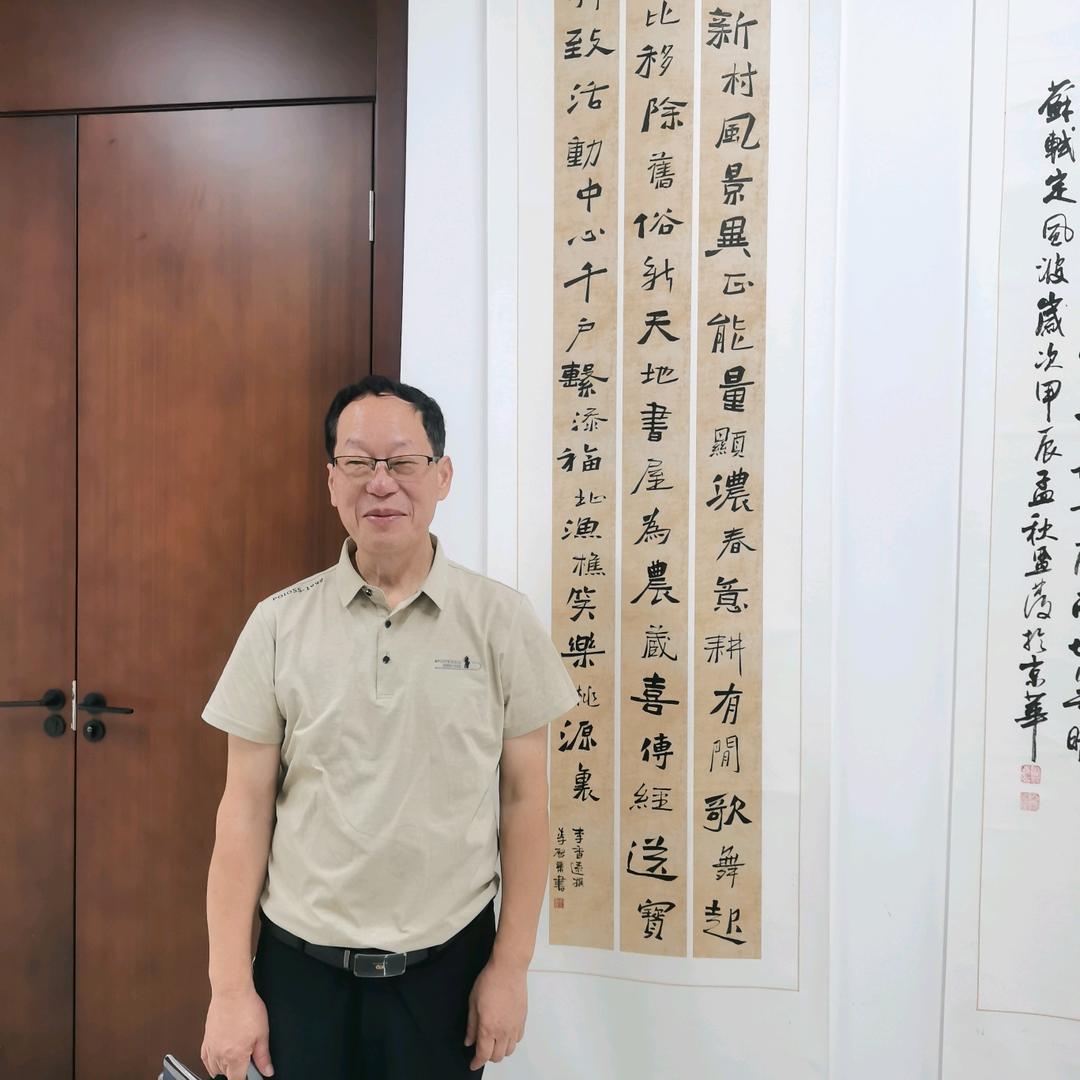 新村風景異正能量顯濃春意耕有閒歌舞起
比移除舊俗新天地書屋為農藏喜傳經送寶
致活動中心千戶繫添福祉漁樵笑樂桃源裏
蘇軾定風波歲次甲辰孟秋於京華